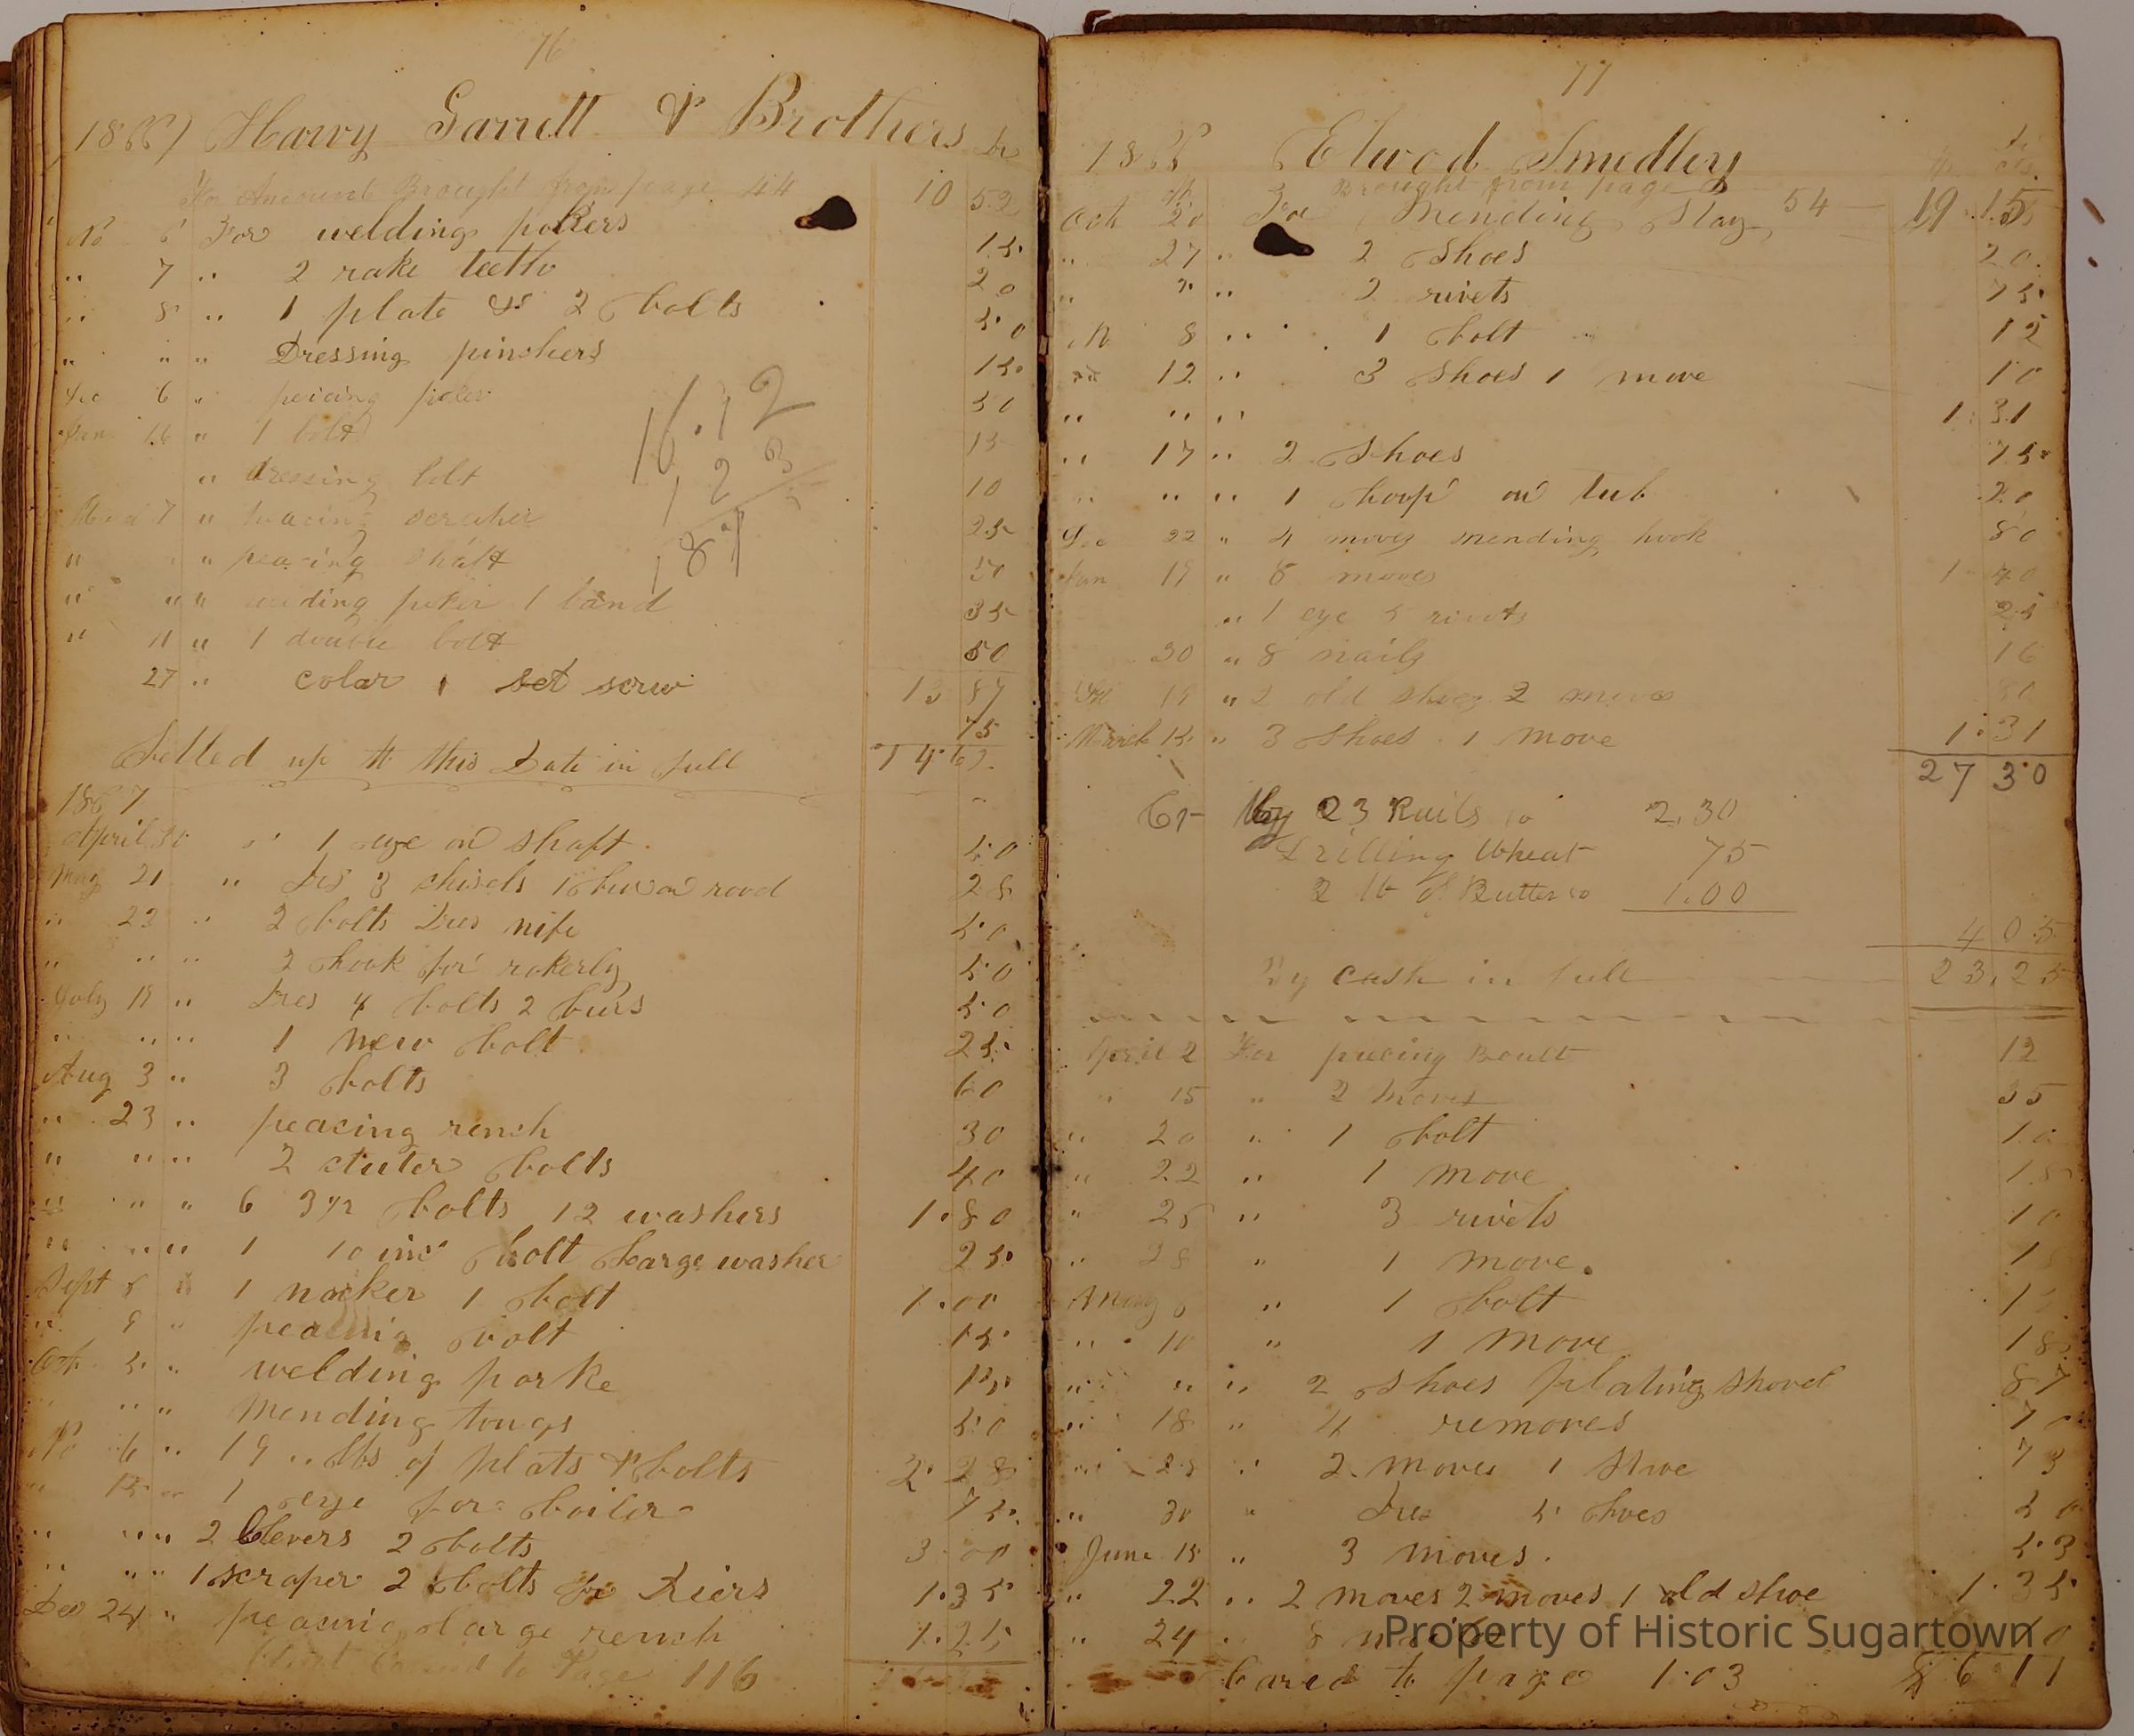 76
Harry Garrett & Brothers Dr
To Amount Brought from page 44 10 52
No 6 For welding pokers 15
" 7 " 2 rake teeth 20
" 8 " 1 plate & 2 bolts 50
" " " Dressing pinshers 15
Dec 6 " peicing poker 50
Jan 16 " 1 bolt 15
" dressing bolt 10
7 " 25
" " " peasing shaft 50
" " " welding poker 1 band 35
" 11 " 1 double bolt 50
27 " colar 1 set screw 13 87
75
Setled up to this Date in full 14.62
16.12
1 2 3
1867
April 30 " 1 eye on shaft 50
May 21 " Dres 3 chisels 1 bur on rood 28
" 23 " 2 bolts Dres nife 50
" " " 2 hook for 50
July 19 " Dres 4 bolts 2 burs 50
" " " 1 new bolt 25
Aug 3 " 3 bolts 60
" 23 " peacing rench 30
" " " 2 bolts 40
" " " 6 3 1/2 bolts 12 washers 1.80
" " " 1 10 inc bolt large washer 25
Sept 6 " 1 nocker 1 bolt 1.00
" 8 " peacing bolt 15
Oct 5 " welding porke 15
" " " Mending tongs 50
No 6 " 19 " lbs of plats & bolts 2.28
" 15 " 1 eye for boiler 75
" " " 2 Clevers 2 bolts 3.00
" " " 1 scraper 2 bolts for Diers 1.35
Dec 24 " peacing large rench 1.25
Page 116
77
Elwood Smedley Dr
cts.
Brought from page 54 19.15
Oct 20 For Mending Slay
" 27 " 2 Shoes 20
" " " 2 rivets 75
N 8 " 1 bolt 12
" 12 " 3 Shoes 1 move 10
" " " 1.31
" 17 " 2 Shoes 75
" " " 1 hoop on tub 20
Dec 22 " 4 moves mending hook 80
Jan 19 " 8 moves 1 40
" 1 eye 5 rivets 25
30 " 8 nails 16
19 " 2 old shoes 2 moves 80
March 15 " 3 Shoes 1 move 1.31
27 30
Cr By 23 Rails 10 2.30
Drilling Wheat 75
2 lb of Butter 50 1.00
4 05
By cash in full 23.25
April 2 For pieceing Boult 12
" 15 " 2 moves 35
" 20 " 1 bolt 10
" 22 " 1 move 18
" 25 " 3 rivets 10
" 28 " 1 move.
May 6 " 1 bolt
" 10 " 1 move 18
" " " 2 shoes plating shovel 87
" 18 " 4 removes 70
" 28 " 2 moves 1 shoe 73
" 30 " Dres 5 hoes 50
June 15 " 3 moves. 53
" 22 " 2 moves 2 moves 1 old shoe 1.35
" 24 " 8
Cared to page 1.03 6 11
Property of Historic Sugartown